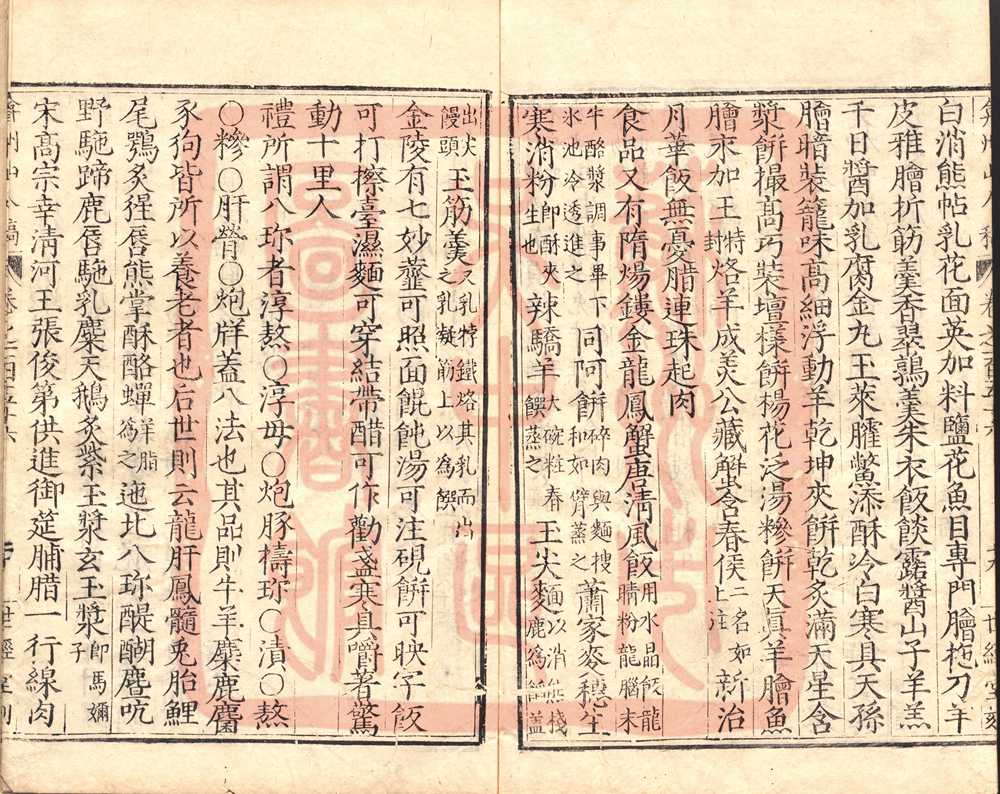 白消熊帖乳花面英加料鹽花魚目專門膾拖刀羊
皮雅膾折筋羹香翠鶉羹朱衣飯餤露醬山子羊羔
千日醬加乳腐金九玉菜臛鱉添酥冷白寒具天孫
膾暗裝籠味高細浮動羊乾坤夾餅乾炙滿天星含
漿餅撮高巧裝壇樣餅楊花泛湯糝餅天真羊膾魚
膾永加王特封烙羊成美公藏蟹含春侯二名如上注新治
月華飯無憂腊連珠起肉
食品又有隋煬鏤金龍鳳蟹唐淸風飯用水晶飯龍睛粉龍腦末
牛酪漿調事畢下氷池冷透進之同阿餅碎肉與麵搜和如臂蒸之蕭家麥穗生
寒消粉即酥夾生也辣驕羊大碗粧春饌蒸之玉尖麥面以消熊棧鹿爲餡蓋
出尖饅頭玉筋羹又乳特鐵烙其乳而出之乳凝筋上以爲饌
金陵有七妙虀可照面餛飩湯可注硯餅可映字飯
可打擦臺濕麵可穿結帶醋可作勸盞寒具嚼著驚
動十里人
禮所謂八珍者淳熬〇淳毋〇炮豚檮珍〇漬〇熬
〇糝〇肝膋〇炮牂蓋八法也其品則牛羊麋鹿麕
豕狗皆所以養老者也后世則云龍肝鳳髓兎胎鯉
尾鶚炙猩唇熊掌酥酪蟬羊脂爲之迤北八珍醍醐麆吭
野駞蹄鹿唇駞乳麋天鵝炙紫玉漿玄玉漿即馬嬭子
宋高宗幸清河王張俊第供進御筵脯腊一行線肉